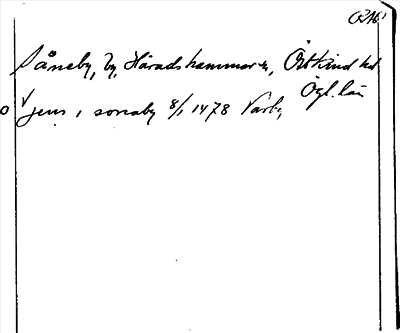 Såneby, by, Häradshammar sn, Östkind hd
Ögl. län
jens, i sonaby 8/1 1478 Vårby